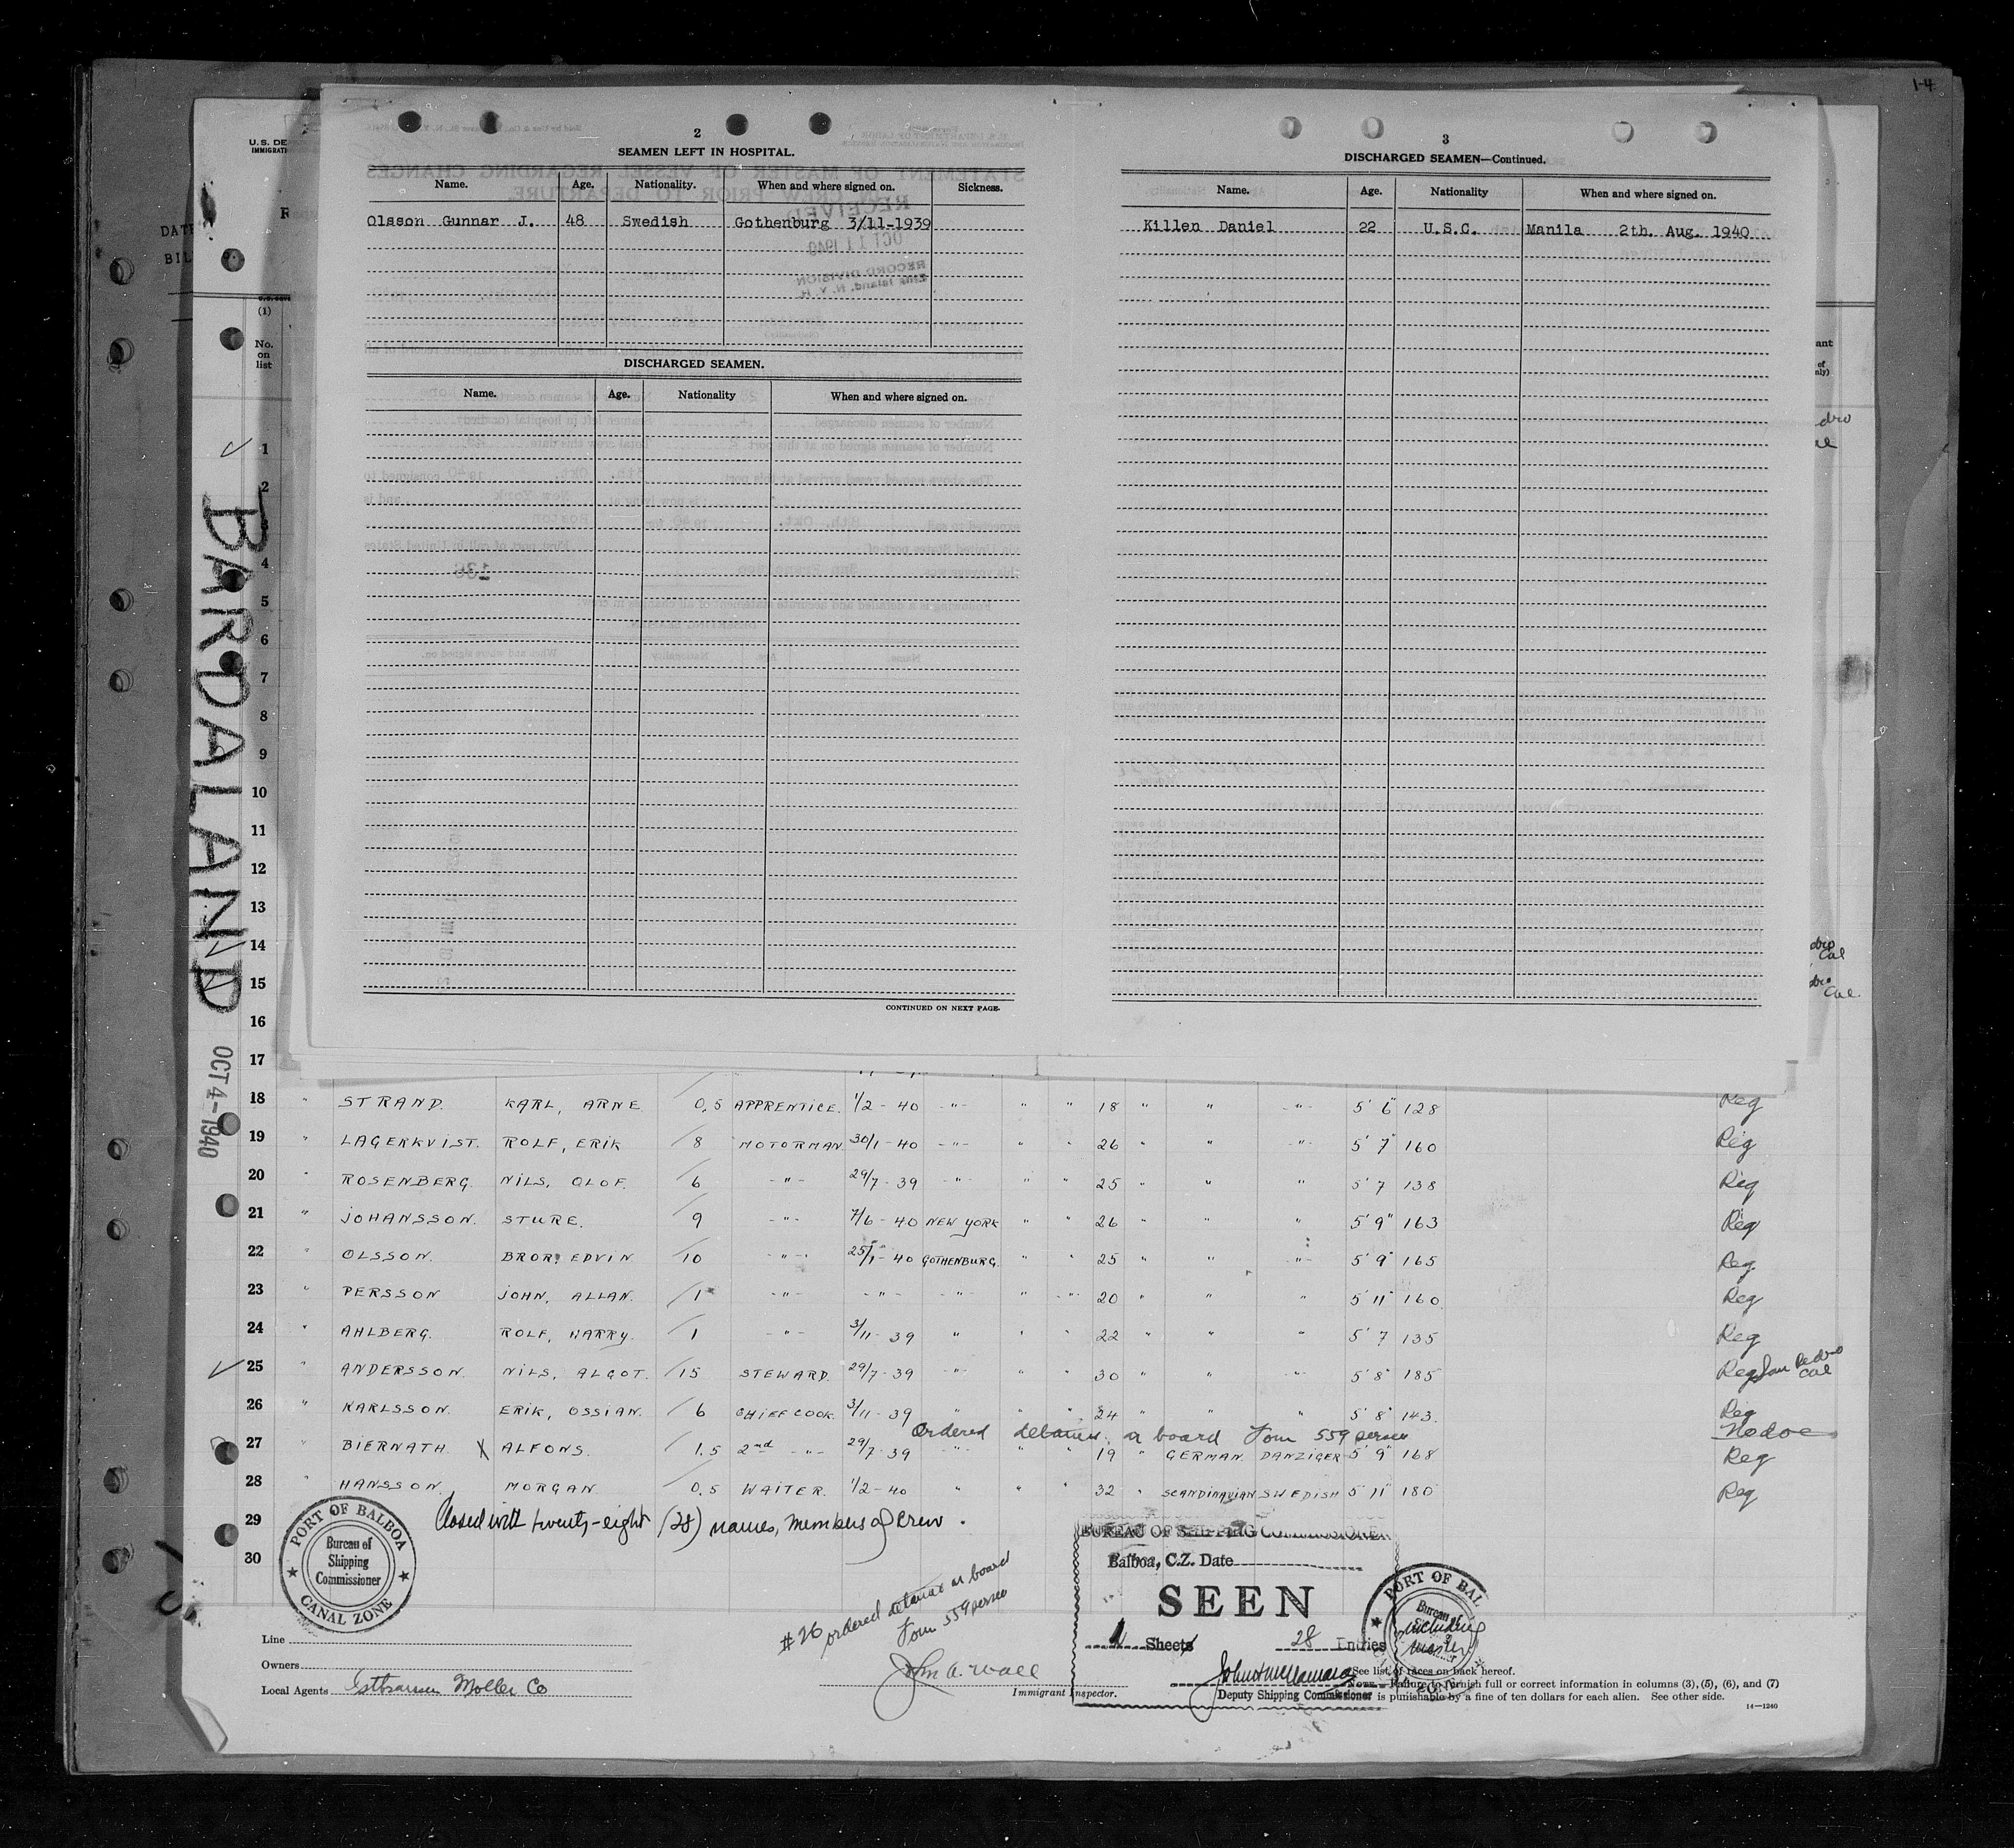 1-4
2
SEAMEN LEFT IN HOSPITAL.
Name. Age. Nationality. When and where signed on. Sickness.
Olsson Gunnar J. 48 Swedish Gothenburg 3/11-1939
DISCHARGED SEAMEN.
Name. Age. Nationality When and where signed on.
CONTINUED ON NEXT PAGE.
3
DISCHARGED SEAMEN—Continued.
Name. Age. Nationality When and where signed on.
Killen Daniel 22 U.S.C. Manila 2th. Aug. 1940
U.S. DE
IMMIGRATI
R
DATE
BIL
(1)
No.
on
list
ant
of
nly)
BARDALAND
OCT 4-1940
1
2
3
4
5
6
7
8
9
10
11
12
13
14
15
16
17
18 " STRAND. KARL, ARNE 0,5 APPRENTICE. 1/2-40 -"- " " 18 " " -"- 5' 6" 128 Reg
19 " LAGERKVIST. ROLF, ERIK 8 MOTORMAN 30/1-40 -"- " " 26 " " -"- 5' 7" 160 Reg
20 " ROSENBERG. NILS, OLOF. 6 -"- 29/7-39 -"- " " 25 " " " 5' 7 138 Reg
21 " JOHANSSON. STURE. 9 -"- 7/6-40 NEW YORK " " 26 " " " 5' 9" 163 Reg
22 " OLSSON. BROR, EDVIN 10 -"- 25/1-40 GOTHENBURG. " " 25 " " -"- 5' 9" 165 Reg
23 " PERSSON JOHN, ALLAN. 1 -"- -"- -"- " -"- 20 " " " 5' 11" 160 Reg
24 " AHLBERG. ROLF, HARRY. 1 -"- 3/11-39 " " " 22 " " " 5' 7 135 Reg
25 " ANDERSSON. NILS, ALGOT. 15 STEWARD. 29/7-39 -"- " " 30 " " -"- 5' 8" 185 Reg San Pedro Cal
26 " KARLSSON. ERIK, OSSIAN. 6 CHIEF COOK. 3/11-39 " " " 24 " " " 5' 8" 143. Reg
Ordered detained on board Form 559 served
27 " BIERNATH X ALFONS. 1,5 2nd -"- 29/7-39 -"- " " 19 " GERMAN. DANZIGER 5' 9" 168 Reg
28 " HANSSON. MORGAN 0,5 WAITER. 1/2-40 " " " 32 " SCANDINAVIAN SWEDISH 5' 11" 180 Reg
29 Closed with twenty-eight (28) names, members of crew.
30
PORT OF BALBOA
Bureau of
Shipping
Commissioner
CANAL ZONE
#26 ordered detained on board
Form 559 served
John A. Wall
Immigrant Inspector.
BUREAU OF SHIPPING COMMISSIONER
Balboa, C.Z. Date
SEEN
1 Sheets 28 Entries
including
master
PORT OF BAL
Bureau of
Deputy Shipping Commissioner
Line
Owners
Local Agents Moller Co
See list of races on back hereof.
NOTE.—Failure to furnish full or correct information in columns (3), (5), (6), and (7)
is punishable by a fine of ten dollars for each alien. See other side.
14—1240